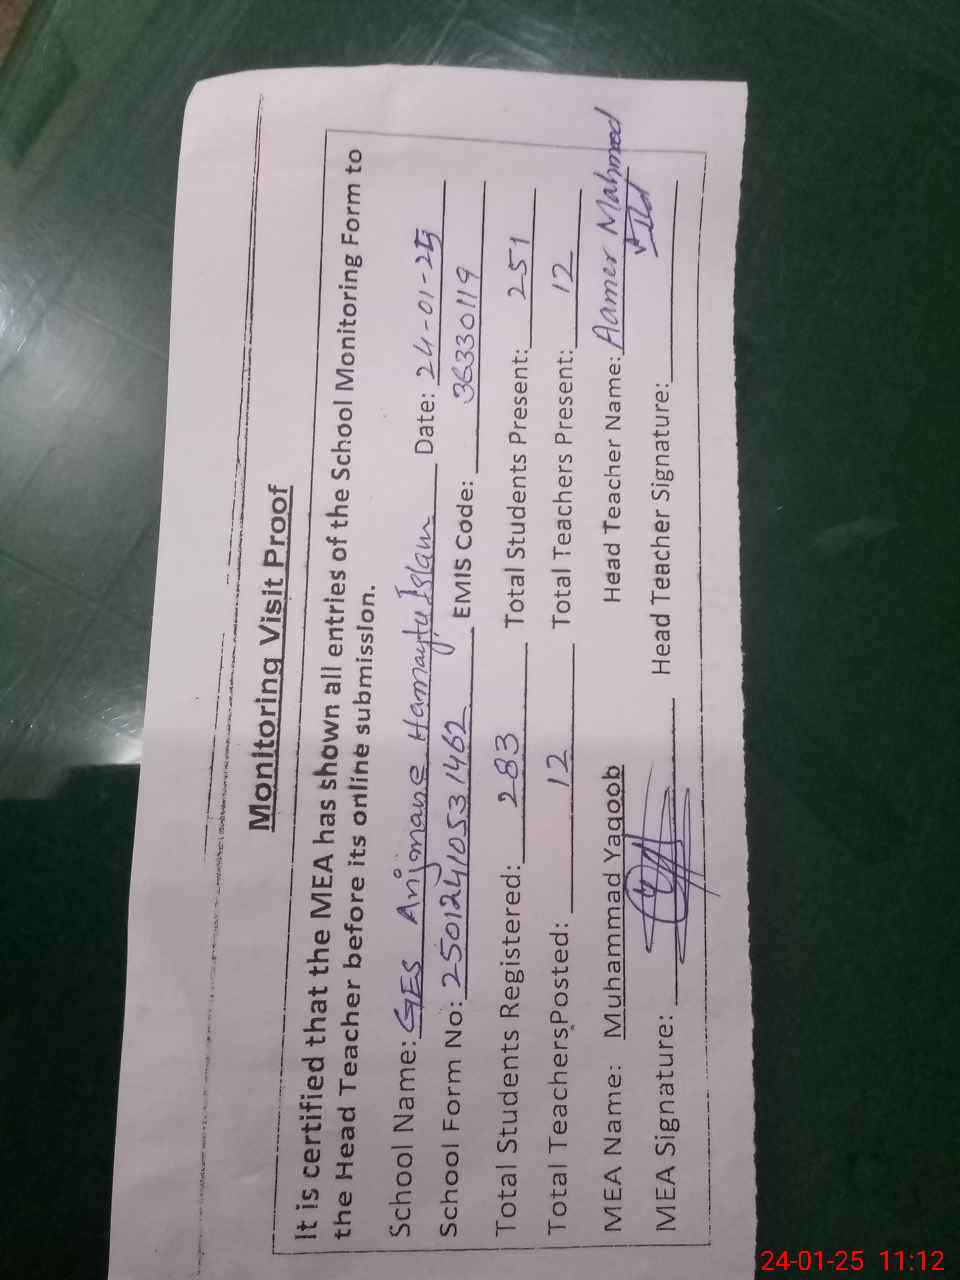 Monitoring Visit Proof
It is certified that the MEA has shown all entries of the School Monitoring Form to
the Head Teacher before its online submission.
School Name: GES Anjmane Hamaytu Islam Date: 24-01-25
School Form No: 25012410531462 EMIS Code: 36330119
Total Students Registered: 283 Total Students Present: 251
Total Teachers Posted: 12 Total Teachers Present: 12
MEA Name: Muhammad Yaqoob Head Teacher Name: Aamer Mahmood
MEA Signature: Head Teacher Signature:
24-01-25 11:12